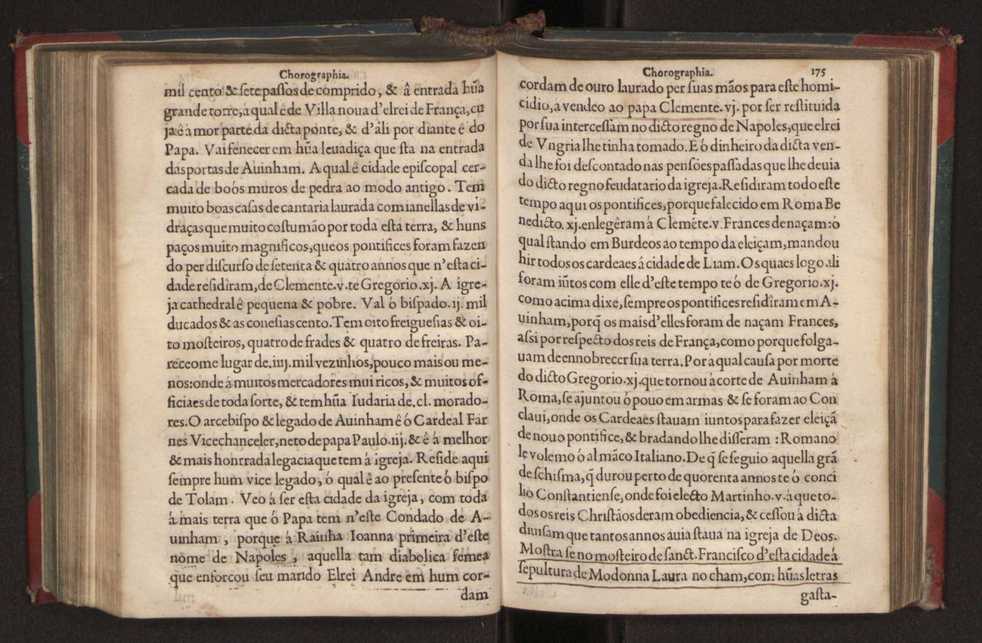 Chorographia.
mil cento & sete passos de comprido, & â entrada hũa
grande torre, a qual é de Villa noua d'elrei de França, cu
ja é à mor parte da dicta ponte, & d'ali por diante é do
Papa. Vai fenecer em hũa leuadiça que sta na entrada
das portas de Auinham. A qual é cidade episcopal cer-
cada de boõs muros de pedra ao modo antigo. Tem
muito boas casas de cantaria laurada com ianellas de vi-
draças que muito costumão por toda esta terra, & huns
paços muito magnificos, que os pontifices foram fazen
do per discurso de setenta & quatro annos que n'esta ci-
dade residiram, de Clemente.v.te Gregorio.xj. A igre-
ja cathedral é pequena & pobre. Val ò bispado.ij. mil
ducados & as conesias cento. Tem oito freiguesias & oi-
to mosteiros, quatro de frades & quatro de freiras. Pa-
receome lugar de.iiij.mil vezinhos, pouco mais ou me-
nos: onde á muitos mercadores mui ricos, & muitos of-
ficiaes de toda sorte, & tem hũa Iudaria de.cl. morado-
res. O arcebispo & legado de Auinham é ò Cardeal Far
nes Vicechanceler, neto de papa Paulo.iij. & é à melhor
& mais honrrada legacia que tem à igreja. Reside aqui
sempre hum vice legado, ò qual é ao presente ò bispo
de Tolam. Veo á ser esta cidade da igreja, com toda
á mais terra que ó Papa tem n'este Condado de A-
uinham, porque à Rainha Ioanna primeira d'este
nome de Napoles, aquella tam diabolica femea
que enforcou seu marido Elrei Andre em hum cor-
dam
Chorographia. 175
cordam de ouro laurado per suas mãos para este homi-
cidio, a vendeo ao papa Clemente.vj. por ser restituida
por sua intercessam no dicto regno de Napoles, que elrei
de Vngria lhe tinha tomado. E ó dinheiro da dicta ven-
da lhe foi descontado nas pensões passadas que lhe deuia
do dicto regno feudatario da igreja. Residiram todo este
tempo aqui os pontifices, porque falecido em Roma Be
nedicto.xj. enlegêram á Clemẽte.v. Frances de naçam: ò
qual stando em Burdeos ao tempo da eleiçam, mandou
hir todos os cardeaes á cidade de Liam. Os quaes logo ali
foram iũtos com elle d'este tempo te ò de Gregorio.xj.
como acima dixe, sempre os pontifices residiram em A-
uinham, porq̃ os mais d'elles foram de naçam Frances,
assi por respecto dos reis de França, como porque folga-
uam de ennobrecer sua terra. Por à qual causa por morte
do dicto Gregorio.xj. que tornou à corte de Auinham à
Roma, se ajuntou ó pouo em armas & se foram ao Con
claui, onde os Cardeaes stauam iuntos para fazer eleiçã
de nouo pontifice, & bradando lhe disseram: Romano
le volemo ó al mãco Italiano. De q̃ se seguio aquella grã
de schisma, q̃ durou perto de quorenta annos te ó conci
lio Constantiense, onde foi electo Martinho.v. à que to-
dos os reis Christãos deram obediencia, & cessou à dicta
diuisam que tantos annos auia staua na igreja de Deos.
Mostra se no mosteiro de sanct. Francisco d'esta cidade á
sepultura de Modonna Laura no cham, com hũas letras
gasta-